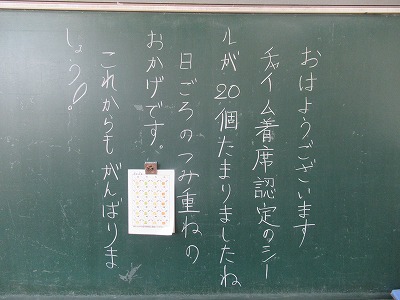 おはようございます
チャイム着席認定のシー
ルが20個たまりましたね
日ごろのつみ重ねの
おかげです。
これからもがんばりま
しょう!。